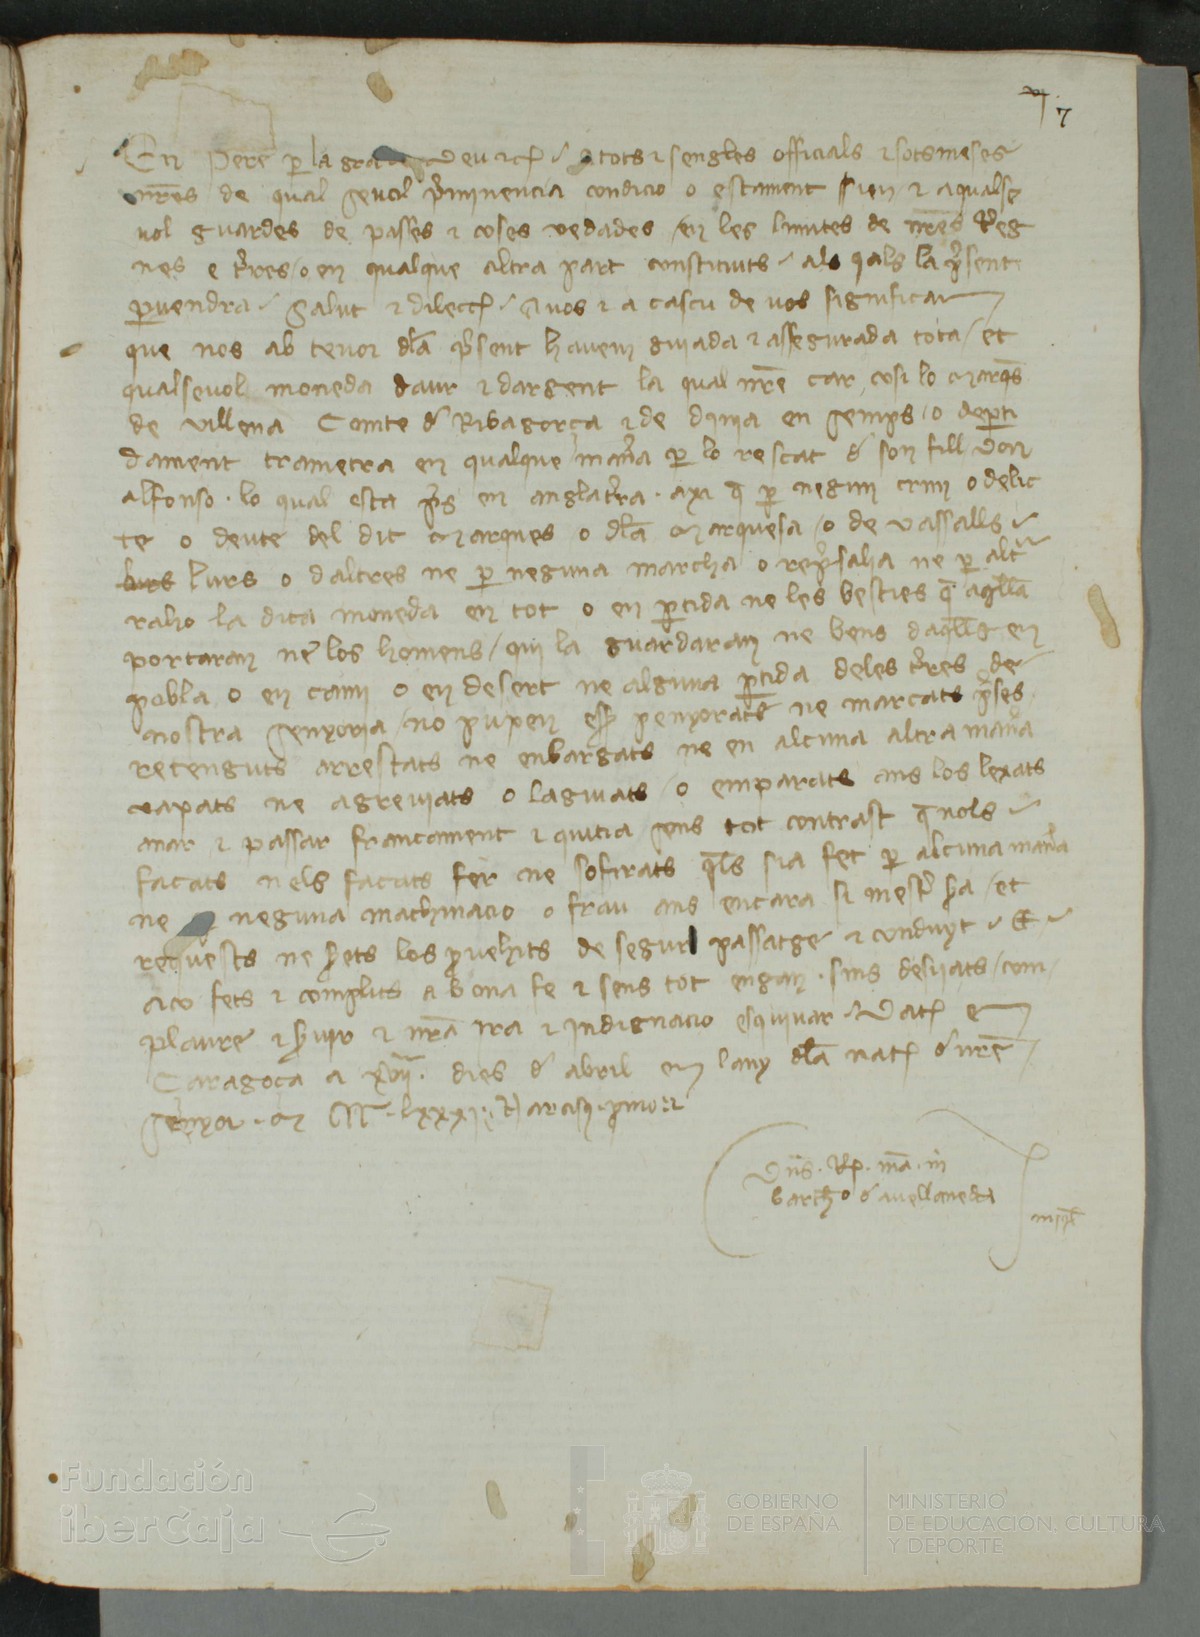 7
En Pere per la gra Deu etc̄ a tots ⁊ sengles officials ⁊ sotsmeses
nr̄es de qual sevol p̄minencia condicio o estament sien ⁊ a qualse
vol guardes de passes ⁊ coses vedades / en les limites de nr̄es Reg
nes e t̄res / o en qualque altra part constituits als quals la p̄sent
pervendra Salut ⁊ dilecc̄ a vos ⁊ a cascu de vos significam
que nos ab tenor dl̄a p̄sent havem guiada ⁊ assegurada tota / et
qualsevol moneda daur ⁊ dargent la qual nr̄e car cosi lo Marq̄s
de Villena Comte d Ribagorça ⁊ de Dnia en semps / o depti
dament trametra en qualque man̄a per lo rescat d son fill Don
alfonso · lo qual esta p̄s en anglat̄ra · axi q̄ per negun crim o delic
te o deute del dit Marques o dl̄a Marquesa / o de vassalls
lurs o daltres ne per neguna marcha o rep̄salia ne per alt̄
raho la dita moneda en tot o en partida ne les besties q̄ aq̄lla
portaran ne los homens / qui la guardaran ne bens daq̄lls en
pobla o en cami o en desert ne alguna ptida deles t̄res de
nostra senyoria / no puxen ess̄ penyorats ne marcats p̄ses
retenguts arrestats ne enbargats ne en alcuna altra man̄a
vapats ne agreuiats o laguiats / o emparats ans los lexats
anar ⁊ passar francament ⁊ quitia sens tot contrast q̄ nols
façats nels façats fer ne sofirats q̄ls sia fet per alcuna man̄a
ne neguna machinacio o frau ans encara si mest̄ s̄a / et
requests ne s̄ets los p̄vehits de segur passatge ⁊ conduyt E
aço fets ⁊ complits a bona fe ⁊ sens tot engan · sins desijats / com
plaure ⁊ s̄vir ⁊ nr̄a ira ⁊ indignacio esquivar Dat̄ en
Caragoça a xvii · dies d abril en lany dl̄a nat̄ d nr̄e
senyor · M CCC · lxxxi ·
Dn̄s · Rex̄ · mā · m̄
Bartho d avellaneda